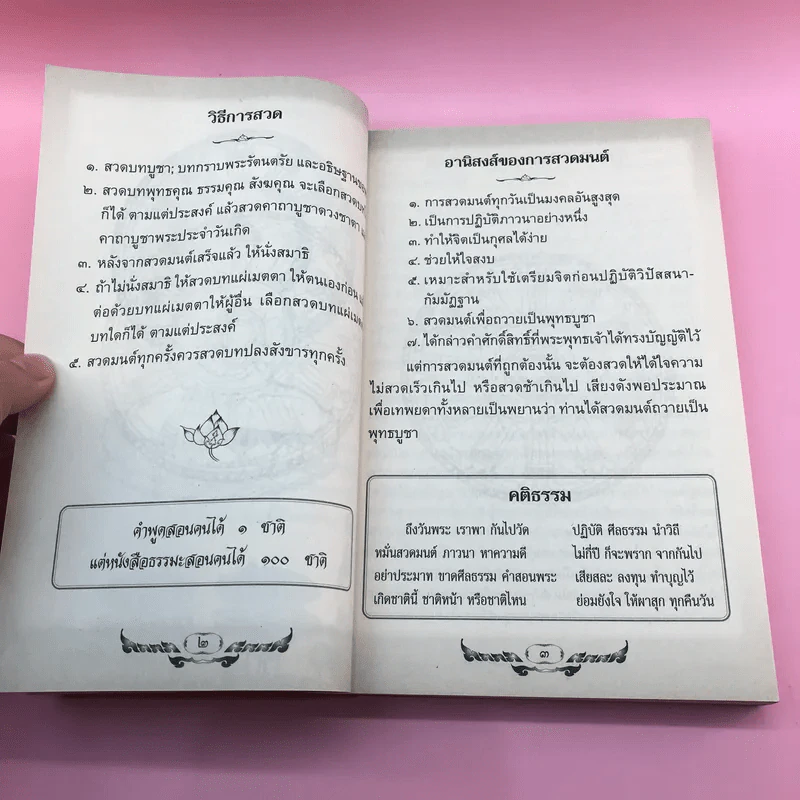 วิธีการสวด
๑. สวดบทบูชา; บทกราบพระรัตนตรัย และอธิษฐาน
๒. สวดบทพุทธคุณ ธรรมคุณ สังฆคุณ จะเลือกสวด
ก็ได้ ตามแต่ประสงค์ แล้วสวดคาถาบูชาดวงชาตา
คาถาบูชาพระประจำวันเกิด
๓. หลังจากสวดมนต์เสร็จแล้ว ให้นั่งสมาธิ
๔. ถ้าไม่นั่งสมาธิ ให้สวดบทแผ่เมตตา ให้ตนเองก่อน
ต่อด้วยบทแผ่เมตตาให้ผู้อื่น เลือกสวดบทแผ่เมตตา
บทใดก็ได้ ตามแต่ประสงค์
๕. สวดมนต์ทุกครั้งควรสวดบทปลงสังขารทุกครั้ง
คำพูดสอนคนได้ ๑ ชาติ
แต่หนังสือธรรมะสอนคนได้ ๑๐๐ ชาติ
๒
อานิสงส์ของการสวดมนต์
๑. การสวดมนต์ทุกวันเป็นมงคลอันสูงสุด
๒. เป็นการปฏิบัติภาวนาอย่างหนึ่ง
๓. ทำให้จิตเป็นกุศลได้ง่าย
๔. ช่วยให้ใจสงบ
๕. เหมาะสำหรับใช้เตรียมจิตก่อนปฏิบัติวิปัสสนา-
กัมมัฏฐาน
๖. สวดมนต์เพื่อถวายเป็นพุทธบูชา
๗. ได้กล่าวคำศักดิ์สิทธิ์ที่พระพุทธเจ้าได้ทรงบัญญัติไว้
แต่การสวดมนต์ที่ถูกต้องนั้น จะต้องสวดให้ได้ใจความ
ไม่สวดเร็วเกินไป หรือสวดช้าเกินไป เสียงดังพอประมาณ
เพื่อเทพยดาทั้งหลายเป็นพยานว่า ท่านได้สวดมนต์ถวายเป็น
พุทธบูชา
คติธรรม
ถึงวันพระ เราพา กันไปวัด ปฏิบัติ ศีลธรรม นำวิถี
หมั่นสวดมนต์ ภาวนา หาความดี ไม่กี่ปี ก็จะพราก จากกันไป
อย่าประมาท ขาดศีลธรรม คำสอนพระ เสียสละ ลงทุน ทำบุญไว้
เกิดชาตินี้ ชาติหน้า หรือชาติไหน ย่อมยังใจ ให้ผาสุก ทุกคืนวัน
๓